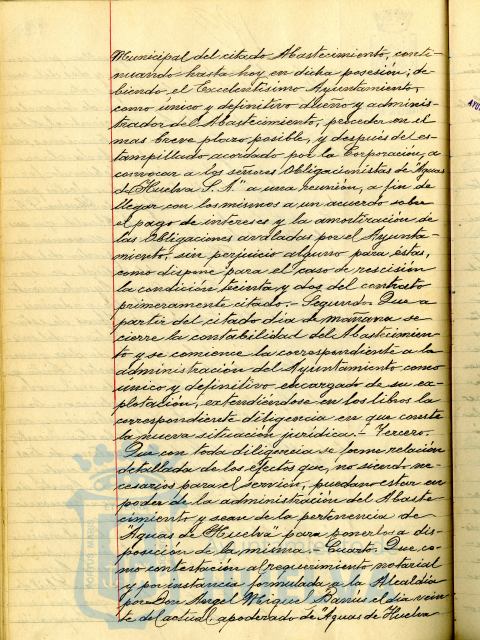 Municipal del citado Abastecimiento, conti-
nuando hasta hoy en dicha posesión; de-
biendo el Excelentísimo Ayuntamiento,
como único y definitivo dueño y adminis-
trador del Abastecimiento, proceder en el
mas breve plazo posible, y después del es-
tampillado acordado por la Corporación, a
convocar a los señores Obligacionistas de "Aguas
de Huelva S. A." a una reunión, a fin de
llegar con los mismos a un acuerdo sobre
el pago de intereses y la amortización de
las Obligaciones avaladas por el Ayunta-
miento, sin perjuicio alguno para éstas,
como dispone para el caso de rescisión
la condición treinta y dos del contrato
primeramente citado.- Segundo. Que a
partir del citado día de mañana se
cierre la contabilidad del Abastecimien-
to y se comience la correspondiente a la
administración del Ayuntamiento como
único y definitivo encargado de su ex-
plotación, extendiéndose en los libros la
correspondiente diligencia en que conste
la nueva situación jurídica.- Tercero.
Que con toda diligencia se forme relación
detallada de los efectos que, no siendo ne-
cesarios para el servicio, puedan estar en
poder de la administración del Abaste-
cimiento y sean de la pertenencia de
"Aguas de Huelva" para ponerlos a dis-
posición de la misma. Cuarto. Que co-
mo contestación al requerimiento notarial
y por instancia formulada a la Alcaldía
por Don Angel Miguel Banús el día vein-
te del actual, apoderado de "Aguas de Huelva